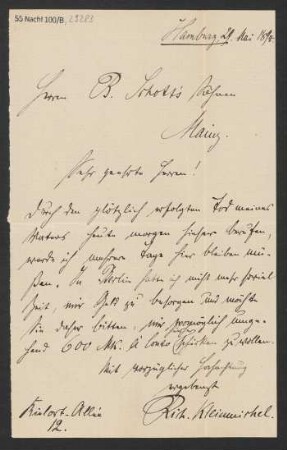 55 Nachl 100/B,
Hamburg 21. Mai 189
Herren B. Schott's Söhnen
Mainz.
Sehr geehrte Herren!
Durch den plötzlich erfolgten Tod meines
Vaters heute morgen hieher berufen,
werde ich mehrere Tage hier bleiben müs-
sen. In Berlin hatte ich nicht mehr soviel
Zeit, mir Geld zu besorgen und möchte
Sie daher bitten, mir womöglich umge-
hend 600 Mk. à Conto schicken zu wollen.
Mit vorzüglicher Hochachtung
ergebenst
Rich. Kleinmichel.
Allee
12.